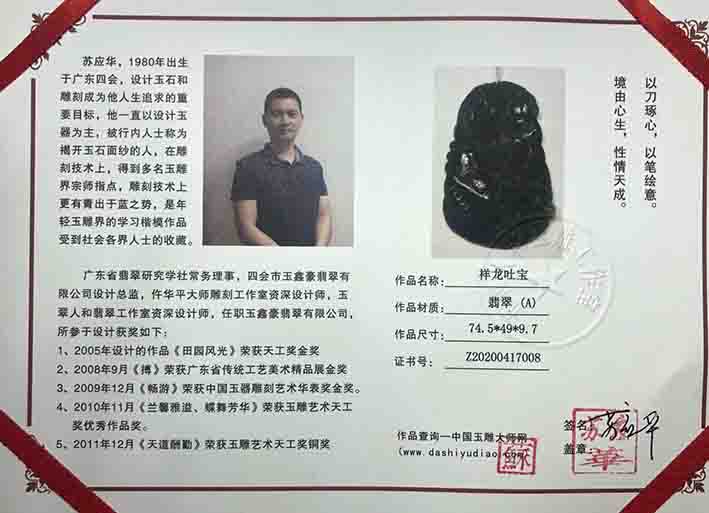 苏应华，1980年出生
于广东四会，设计玉石和
雕刻成为他人生追求的重
要目标，他一直以设计玉
器为主，被行内人士称为
揭开玉石面纱的人，在雕
刻技术上，得到多名玉雕
界宗师指点，雕刻技术上
更有青出于蓝之势，是年
轻玉雕界的学习楷模作品
受到社会各界人士的收藏。
以刀琢心，以笔绘意。
境由心生，性情天成。
广东省翡翠研究学社常务理事，四会市玉鑫豪翡翠有
限公司设计总监，仵华平大师雕刻工作室资深设计师，玉
翠人和翡翠工作室资深设计师，任职玉鑫豪翡翠有限公司，
所参于设计获奖如下：
1、2005年设计的作品《田园风光》荣获天工奖金奖
2、2008年9月《搏》荣获广东省传统工艺美术精品展金奖
3、2009年12月《畅游》荣获中国玉器雕刻艺术华表奖金奖。
4、2010年11月《兰馨雅溢、蝶舞芳华》荣获玉雕艺术天工
奖优秀作品奖。
5、2011年12月《天道酬勤》荣获玉雕艺术天工奖铜奖
作品名称： 祥龙吐宝
作品材质： 翡翠（A）
作品尺寸： 74.5*49*9.7
证书号： Z20200417008
作品查询一中国玉雕大师网
（www.dashiyudiao.com）
签名
盖章：
蘇